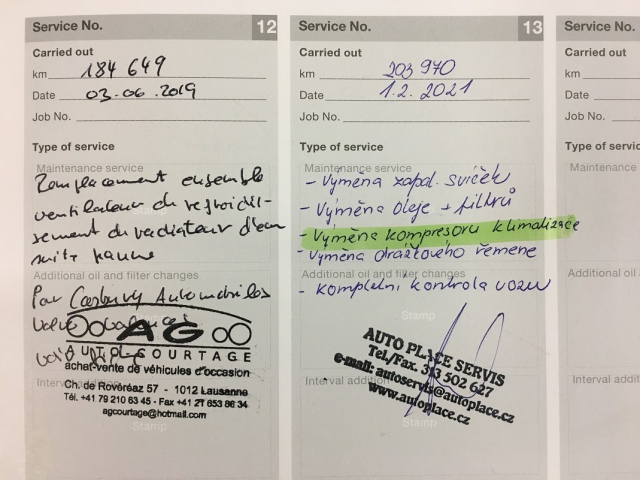 Service No. 12
Carried out
km 184 649
Date 03.06.2019
Job No.
Type of service
Maintenance service
Remplacement ensemble
ventilateur de refroidis-
sement du radiateur d'eau
suite panne
Additional oil and filter changes
Par Carbury Automobiles
Stamp
AG
AUTO COURTAGE
achat-vente de véhicules d'occasion
Interval addition
Ch. de Rovéréaz 57 - 1012 Lausanne
Tél. +41 79 210 63 45 - Fax +41 21 653 86 34
agcourtage@hotmail.com
Stamp
Service No. 13
Carried out
km 203 970
Date 1.2.2021
Job No.
Type of service
Maintenance service
- Výměna zapal. svíček
- Výměna oleje + filtrů
- Výměna kompresoru klimatizace
- Výměna drážkového řemene
Additional oil and filter changes
- kompletní kontrola vozu
Stamp
AUTO PLACE SERVIS
Tel./Fax. 313 502 627
e-mail: autoservis@autoplace.cz
www.autoplace.cz
Interval addition
Stamp
Service No.
Carried out
km
Date
Job No.
Type of servic
Maintenance
Additional oil
Interval addition